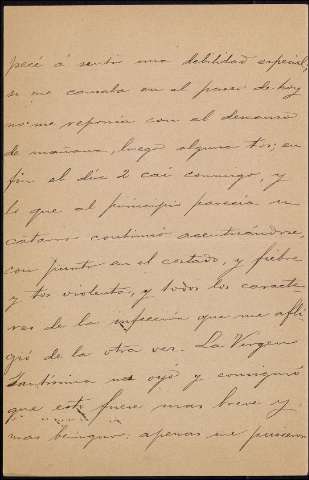 pecé á sentir una debilidad especial,
si me cansaba en el paseo de hoy
no me reponía con el descanso
de mañana, luego alguna tos; en
fin el día 2 caí conmigo, y
lo que al principio parecía un
catarro continuó acentuándose,
con punto en el costado, y fiebre
y tos violenta, y todos los caracte-
res de la infección que me afli-
gió de la otra vez. La Virgen
Santísima me oyó y consiguió
que esto fuese mas breve y
mas benigno: apenas me pusieron